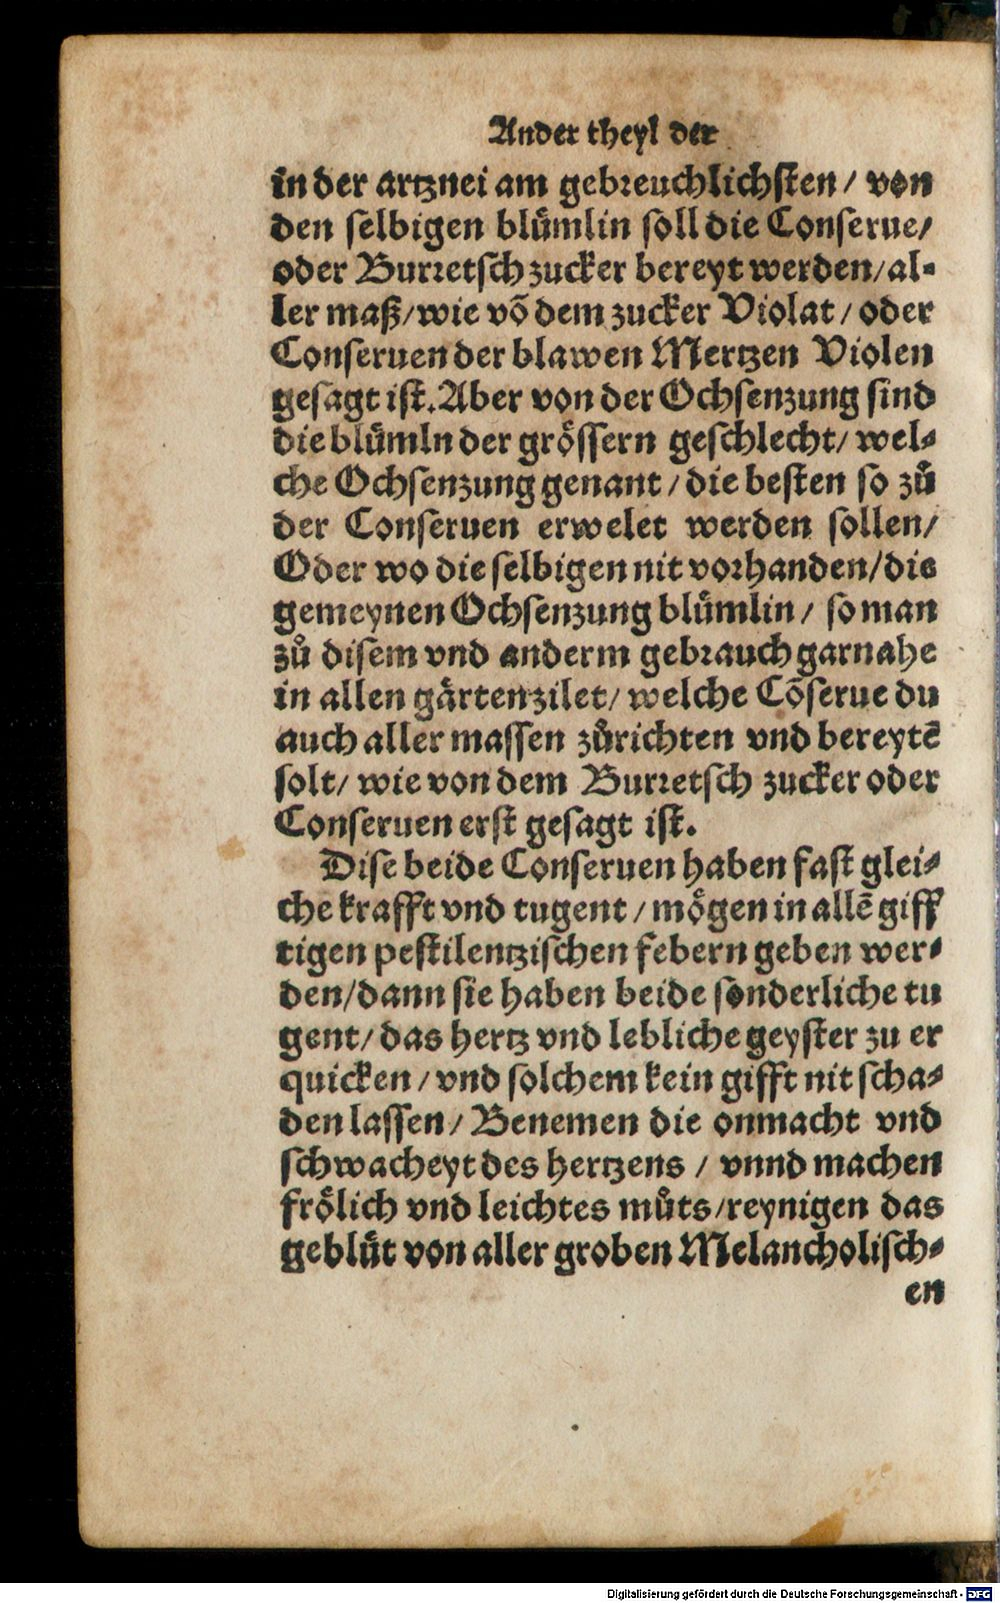 Ander theyl der
in der artznei am gebreuchlichsten / von
den selbigen blůmlin soll die Conserue/
oder Burretsch zucker bereyt werden/al-
ler maß/wie võ dem zucker Violat / oder
Conseruen der blawen Mertzen Violen
gesagt ist. Aber von der Ochsenzung sind
die blůmln der grössern geschlecht/ wel-
che Ochsenzung genant / die besten so zů
der Conseruen erwelet werden sollen/
Oder wo die selbigen nit vorhanden/die
gemeynen Ochsenzung blůmlin / so man
zů disem vnd anderm gebrauch gar nahe
in allen gärten zilet/ welche Cõserue du
auch aller massen zůrichten vnd bereytẽ
solt/ wie von dem Burretsch zucker oder
Conseruen erst gesagt ist.
Dise beide Conseruen haben fast glei-
che krafft vnd tugent / mögen in allẽ giff
tigen pestilentzischen febern geben wer-
den/dann sie haben beide sonderliche tu
gent/ das hertz vnd lebliche geyster zu er
quicken / vnd solchem kein gifft nit scha-
den lassen / Benemen die onmacht vnd
schwacheyt des hertzens / vnnd machen
frölich vnd leichtes můts/reynigen das
geblůt von aller groben Melancholisch-
en
Digitalisierung gefördert durch die Deutsche Forschungsgemeinschaft - DFG